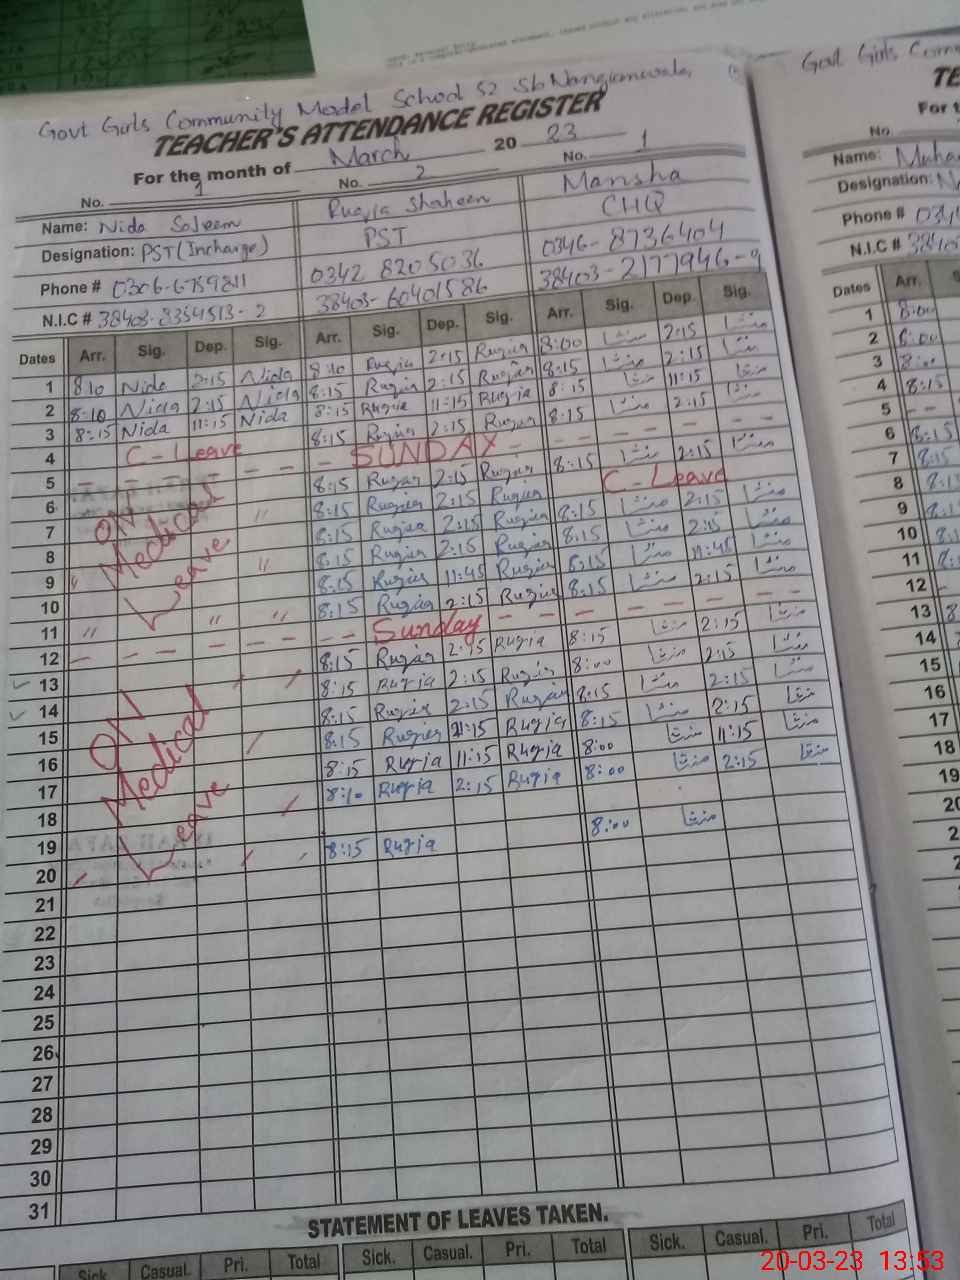 Govt Girls Community Model School 52 Sb Nangianwala
TEACHER'S ATTENDANCE REGISTER
For the month of March 20 23
No. 1 No. 2 No. 1
Name: Nida Saleem Ruqia Shaheen Mansha
Designation: PST (Incharge) PST CHQ
Phone # 0306-6759811 0342 8205036 0346-8736404
N.I.C # 38403-8354513-2 38403-60401586 38403-2177946-9
Dates Arr. Sig. Dep. Sig. Arr. Sig. Dep. Sig. Arr. Sig. Dep. Sig.
1 8:10 Nida 2:15 Nida 8:10 Ruqia 2:15 Ruqia 8:00 منشا 2:15 منشا
2 8:10 Nida 2:15 Nida 8:15 Ruqia 2:15 Ruqia 8:15 منشا 2:15 منشا
3 8:15 Nida 11:15 Nida 8:15 Ruqia 11:15 Ruqia 8:15 منشا 11:15 منشا
4 C - Leave 8:15 Ruqia 2:15 Ruqia 8:15 منشا 2:15 منشا
5 - - - SUNDAY - - - - - -
6 8:15 Ruqia 2:15 Ruqia 8:15 منشا 2:15 منشا
7 ON Medical Leave " 8:15 Ruqia 2:15 Ruqia C - Leave
8 8:15 Ruqia 2:15 Ruqia 8:15 منشا 2:15 منشا
9 " " 8:15 Ruqia 2:15 Ruqia 8:15 منشا 2:15 منشا
10 8:15 Ruqia 11:45 Ruqia 8:15 منشا 11:45 منشا
11 " " " 8:15 Ruqia 2:15 Ruqia 8:15 منشا 2:15 منشا
12 - - - - - - Sunday - - - - - -
13 8:15 Ruqia 2:15 Ruqia 8:15 منشا 2:15 منشا
14 ON Medical Leave 8:15 Ruqia 2:15 Ruqia 8:00 منشا 2:15 منشا
15 8:15 Ruqia 2:15 Ruqia 8:15 منشا 2:15 منشا
16 8:15 Ruqia 2:15 Ruqia 8:15 منشا 2:15 منشا
17 8:15 Ruqia 11:15 Ruqia 8:00 منشا 11:15 منشا
18 8:10 Ruqia 2:15 Ruqia 8:00 منشا 2:15 منشا
19
20 8:15 Ruqia 8:00 منشا
21
22
23
24
25
26
27
28
29
30
31
STATEMENT OF LEAVES TAKEN.
Sick. Casual. Pri. Total Sick. Casual. Pri. Total Sick. Casual. Pri. Total
Govt Girls
For t
No.
Name:
Designation:
Phone # 034
N.I.C # 38403
Dates Arr.
1 8:00
2 8:00
3 8:00
4 8:15
5 - -
6 8:15
7 8:15
8
9
10
11
12
13
14
15
16
17
18
19
20-03-23 13:53